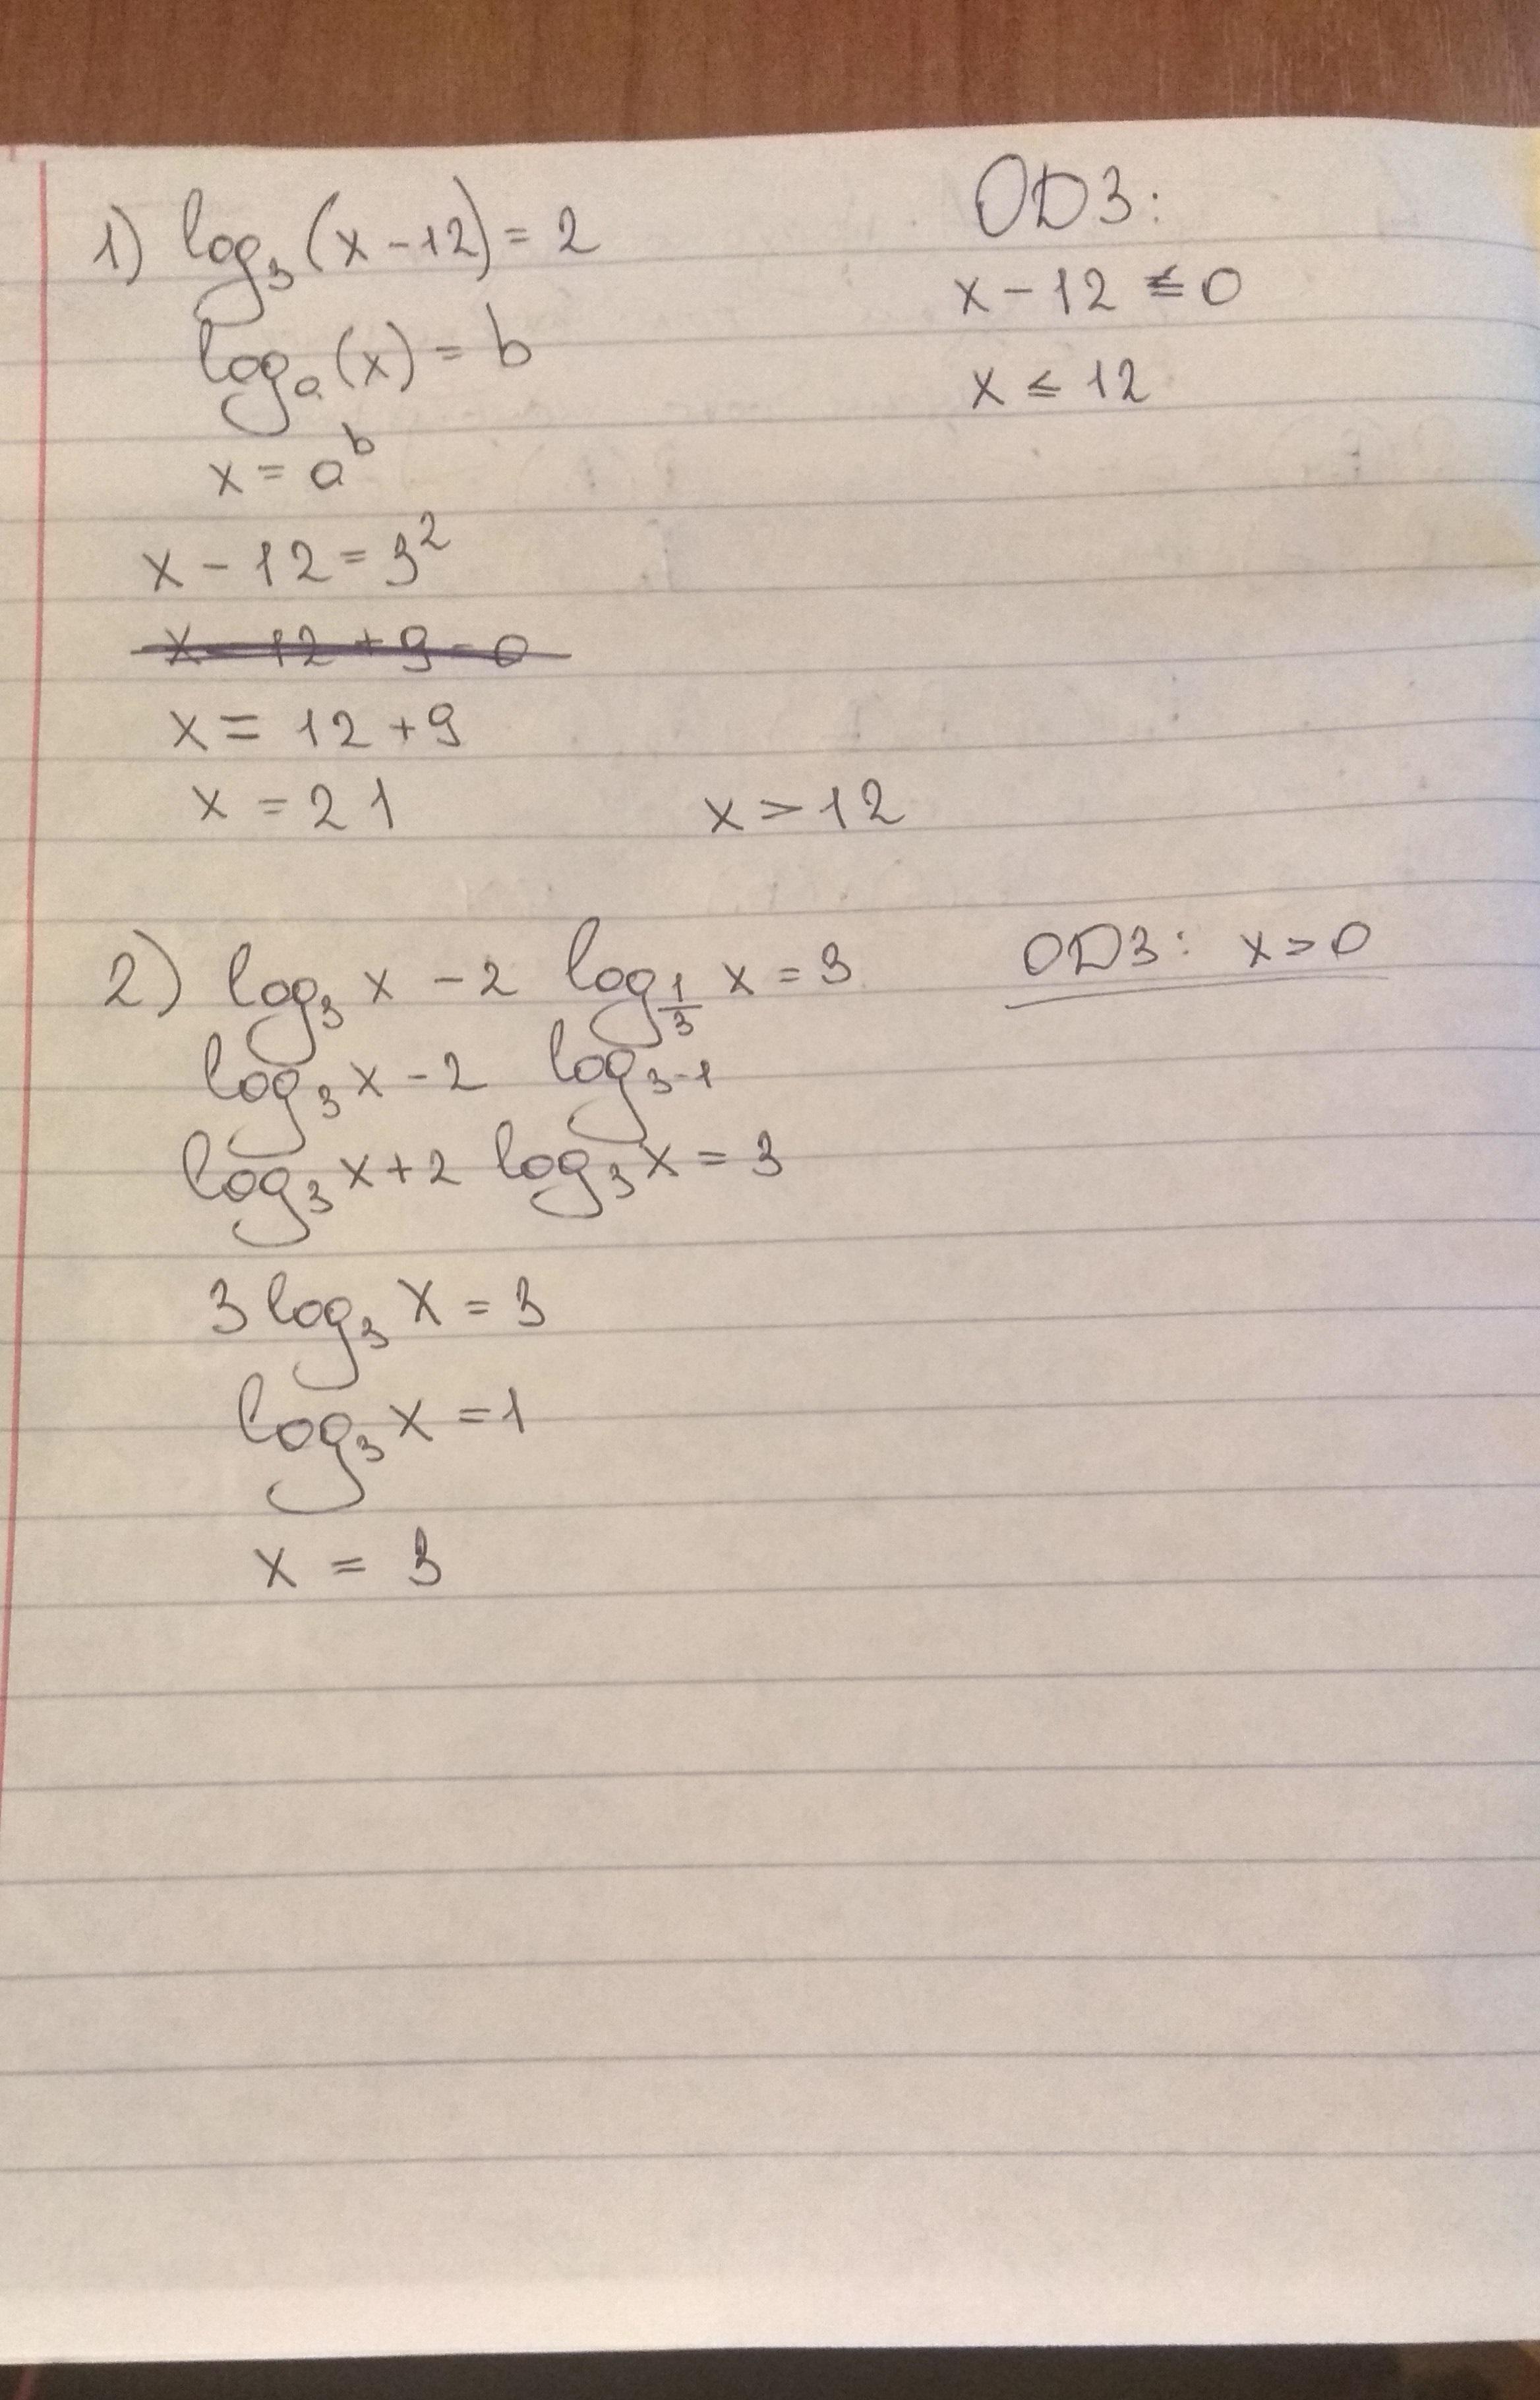 1) log₃(x-12)=2
ОДЗ:
x-12 ≤ 0
logₐ(x) = b
x ≤ 12
x = aᵇ
x - 12 = 3²
x - 12 + 9 = 0
x = 12 + 9
x = 21
x > 12
2) log₃ x - 2 log_{1/3} x = 3
ОДЗ: x > 0
log₃ x - 2 log_{3-1}
log₃ x + 2 log₃ x = 3
3 log₃ x = 3
log₃ x = 1
x = 3